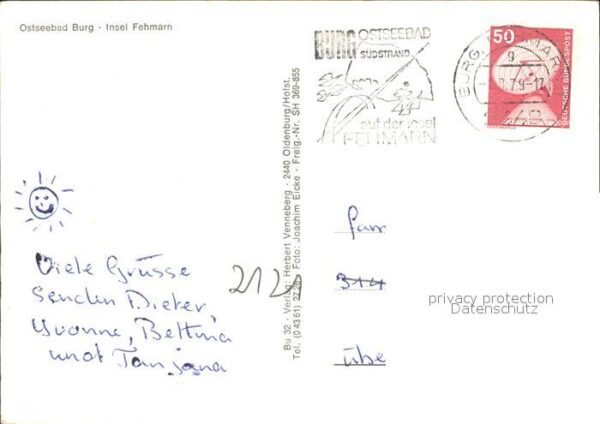 Ostseebad Burg · Insel Fehmarn
BURG OSTSEEBAD
SÜDSTRAND
auf der Insel
FEHMARN
50
DEUTSCHE BUNDESPOST
Viele Grüsse
senden Dieter,
Yvonne, Bettina
und Tanjana
212
Bu 32 · Verlag: Herbert Venneberg · 2440 Oldenburg/Holst.
Tel. (0 43 61) 27 28 · Foto: Joachim Eicke · Freig.-Nr. SH 369-855
Fam
314
privacy protection
Datenschutz